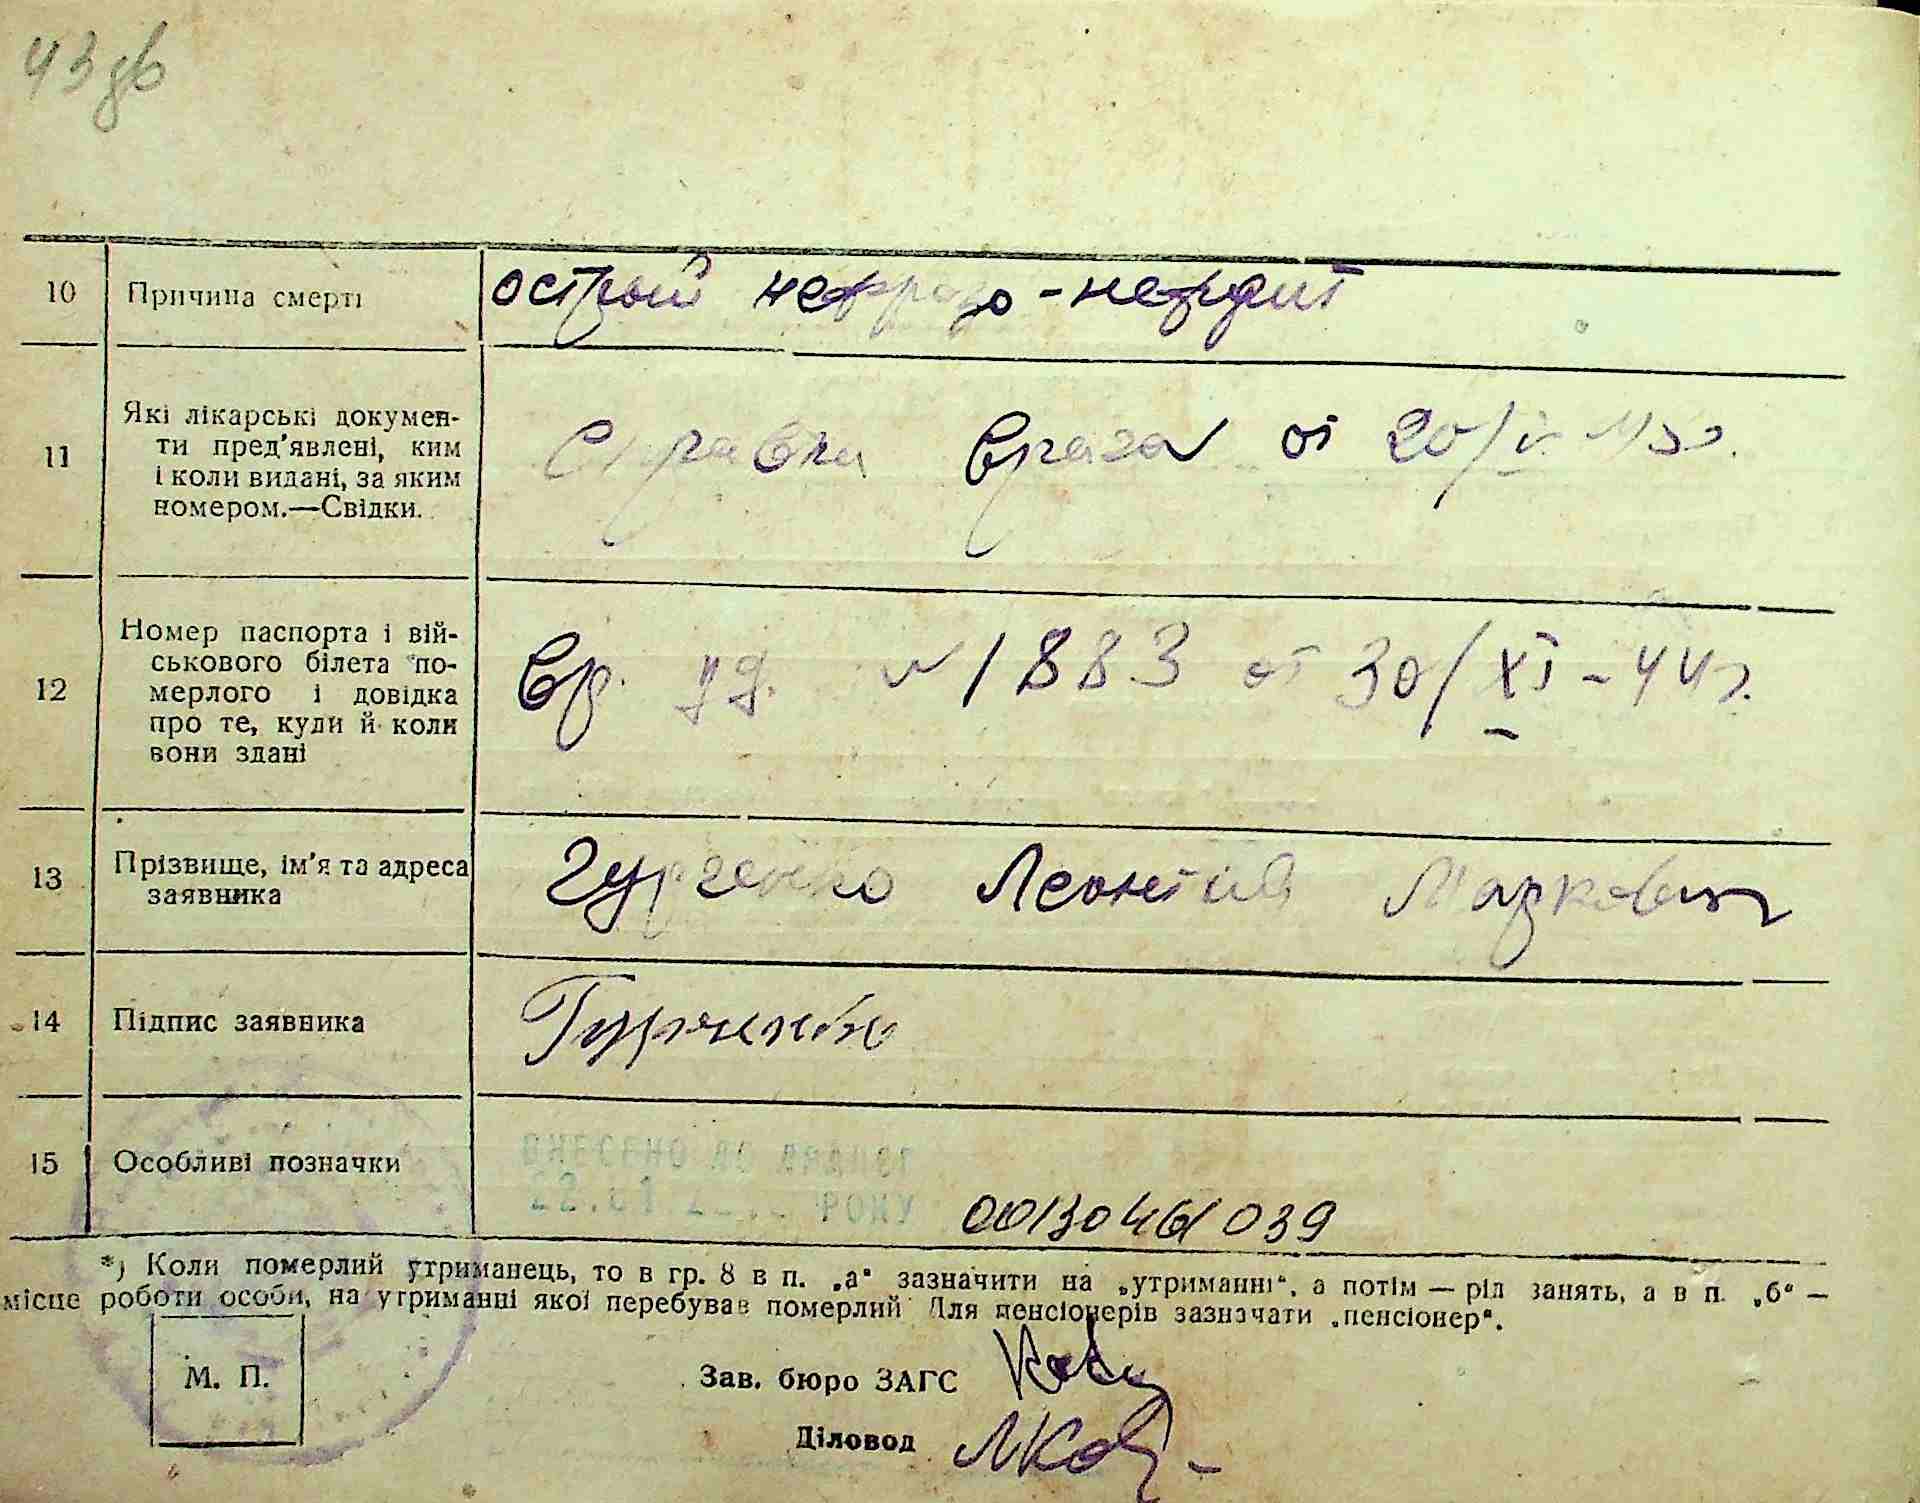 43 зв
10 Причина смерті острый нефрозо-нефрит
11 Які лікарські докумен-
ти пред'явлені, ким
і коли видані, за яким
номером.—Свідки.
Справка врача от 20/V
12 Номер паспорта і вій-
ськового білета по-
мерлого і довідка
про те, куди й коли
вони здані
Вр. уд. № 1883 от 30/XI-44г.
13 Прізвище, ім'я та адреса
заявника
Гурченко Леонтий Маркович
14 Підпис заявника Гурченко
15 Особливі позначки
РОКУ
00130461039
*) Коли померлий утриманець, то в гр. 8 в п. „а“ зазначити на „утриманні“, а потім — ріл занять, а в п. „б“ —
місце роботи особи, на утриманні якої перебував померлий Для пенсіонерів зазначати „пенсіонер“.
М. П.
Зав. бюро ЗАГС
Діловод